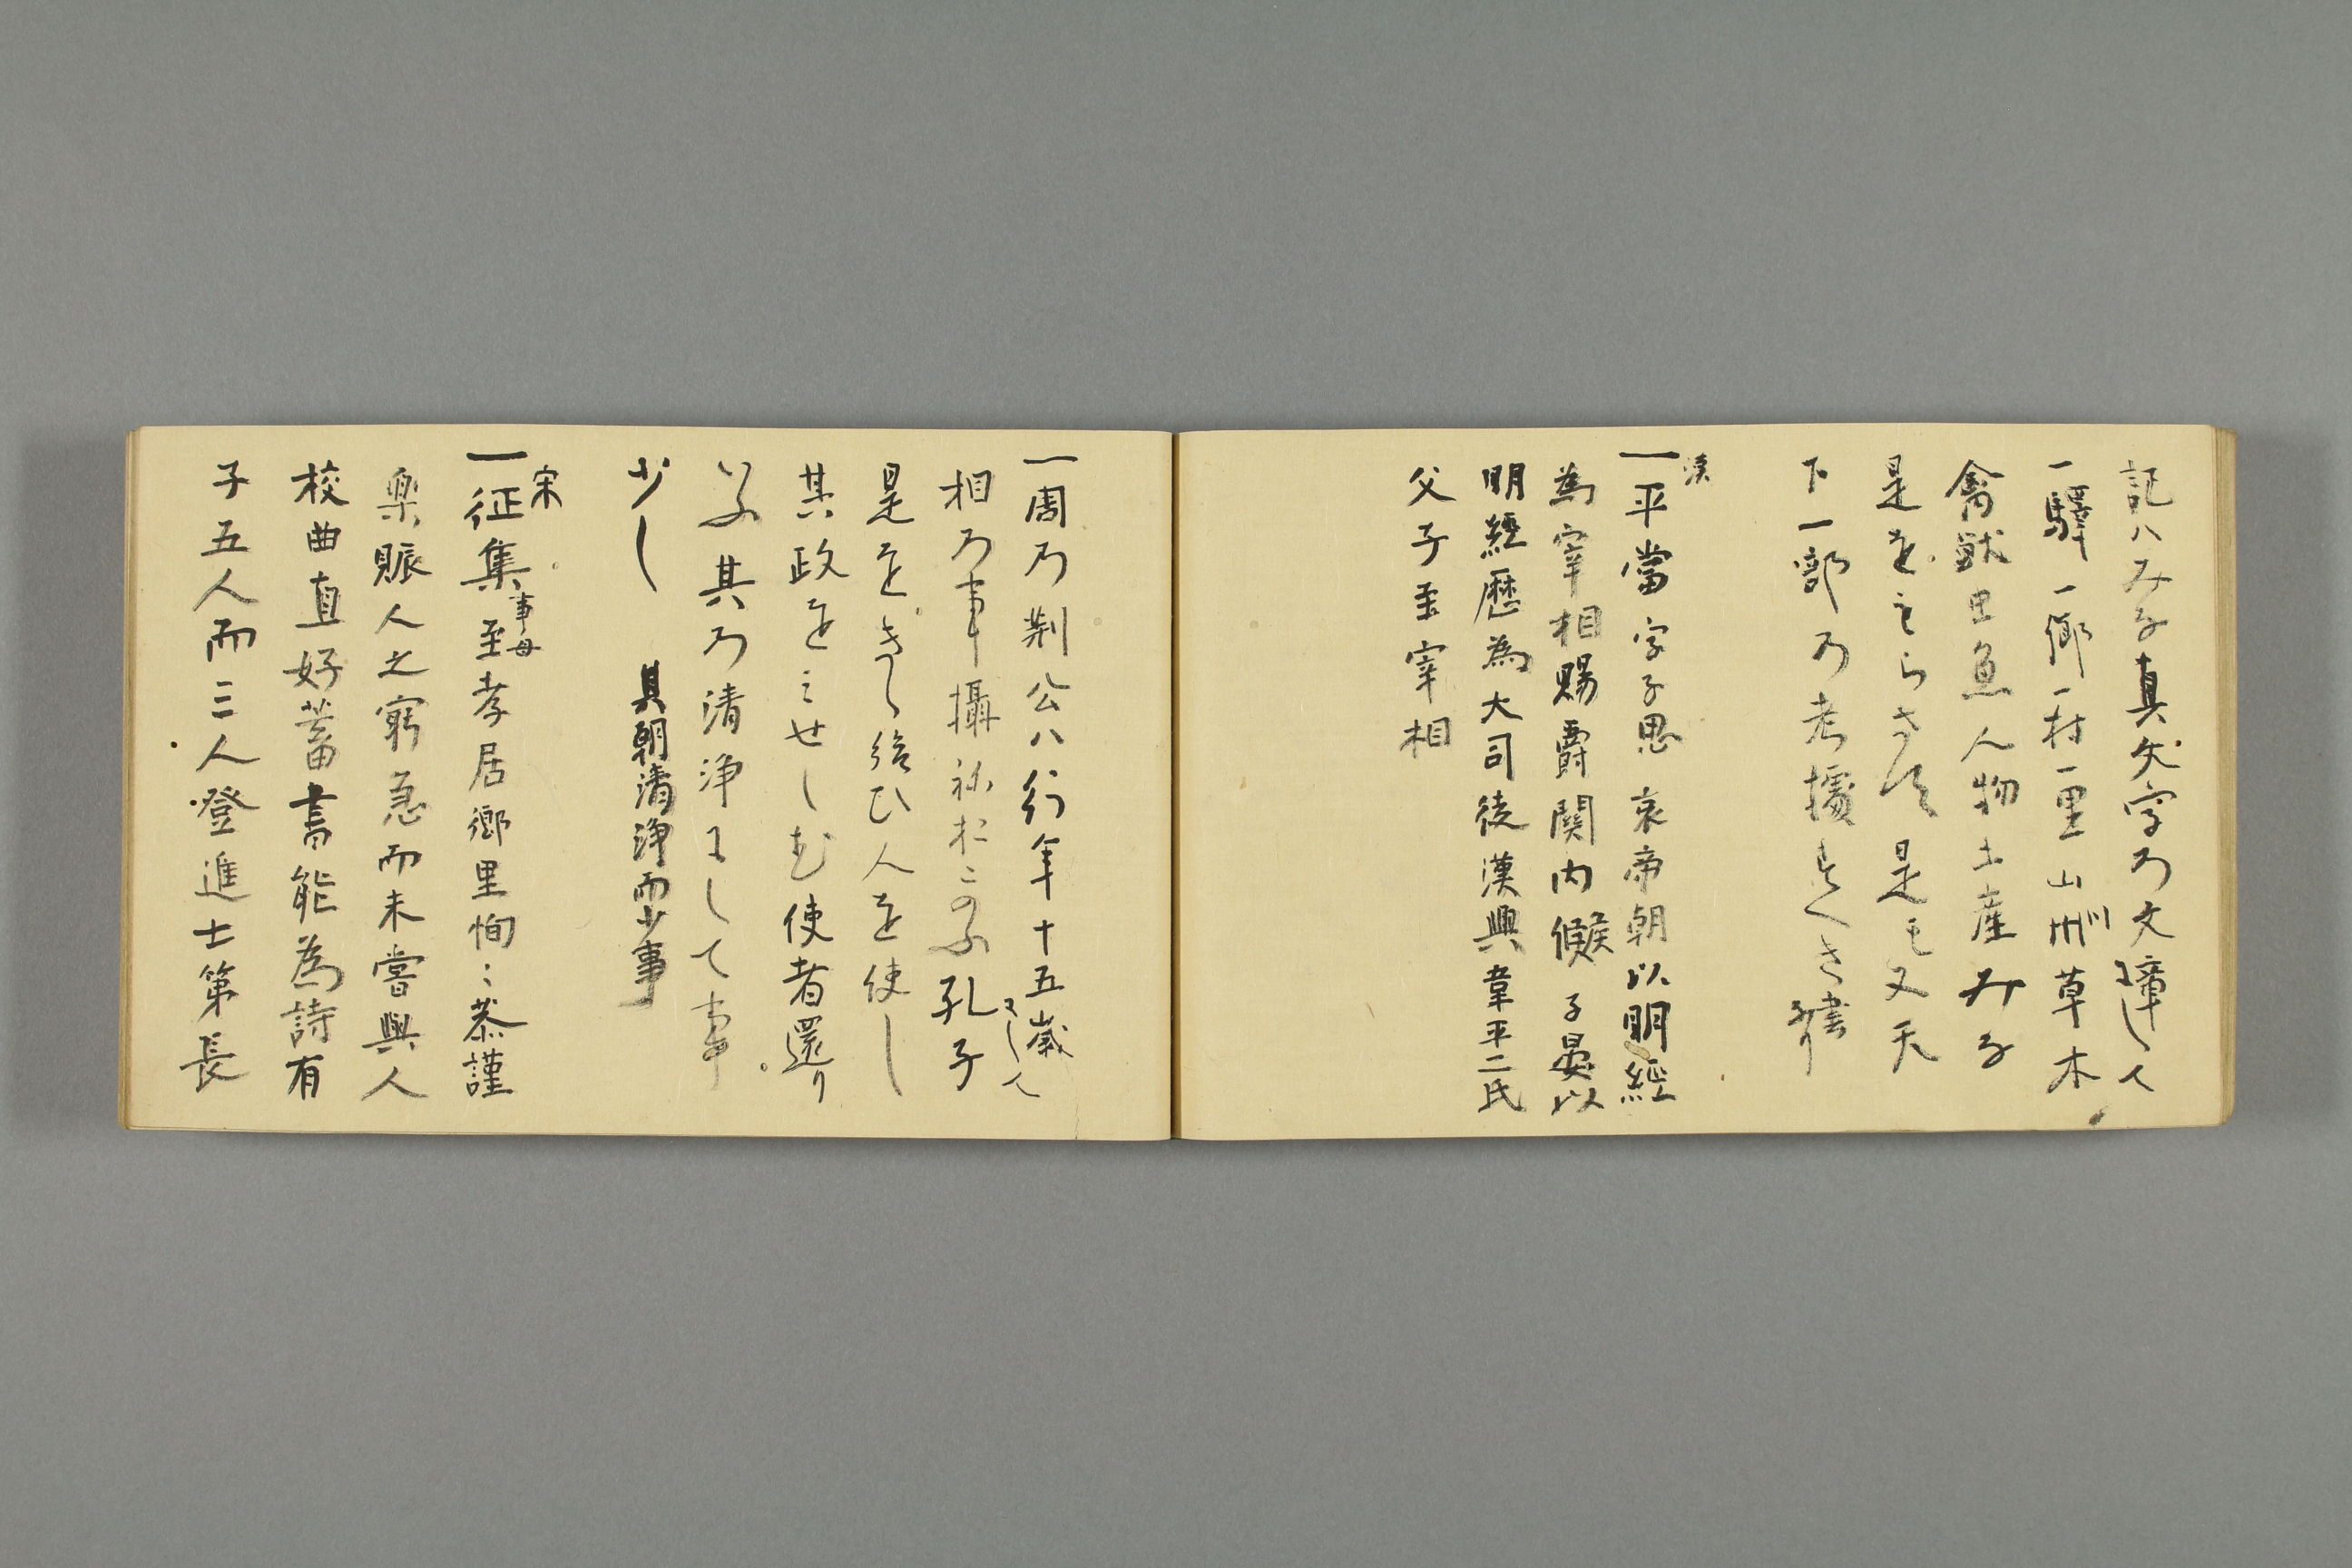 記ハみな真字の文章にして
一驛一郷一村一里山川草木
禽獣虫魚人物土産みな
是をもらさす是も又天
下一部の考據すへき書なり
漢
一平當字子思哀帝朝以明經
為宰相賜爵關内侯子晏以
明經歴為大司徒漢興韋平二氏
父子至宰相
一周の荊公ハ行年十五歳にして
相の事攝行ふ孔子
是をきゝ給ひ人を使し
其政をみせしむ使者還り
いふ其の清浄にして事
少し 其朝清浄而少事
宋
一征集事母至孝居郷里恂〻恭謹
楽賑人之窮急而未嘗與人
校曲直好蓄書能為詩有
子五人而三人登進士第長